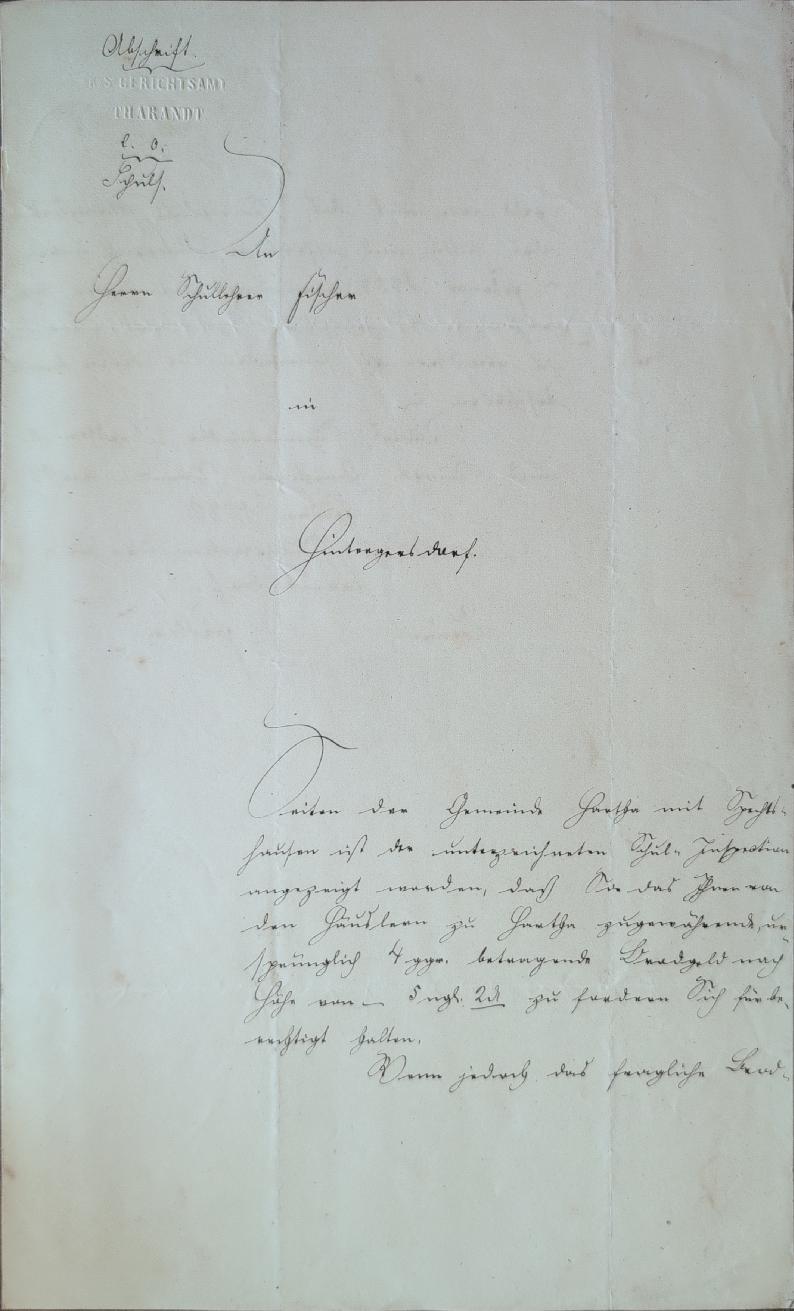 Abschrift.
K S GERICHTSAMT
THARANDT
l. o.
Schuls.
An
Herrn Schullehrer Fischer
in
Hintergersdorf.
Seiten der Gemeinde Hartha mit Spechts-
hausen ist der unterzeichneten Schul-Inspection
angezeigt worden, daß Sie das Ihnen von
den Häuslern zu Hartha zugewährende, ur-
sprünglich 4 ggr. betragende Brodgeld nach
Höhe von — 5 ngl. 2 d zu fordern Sich für be-
rechtigt halten.
Wenn jedoch das fragliche Brod-